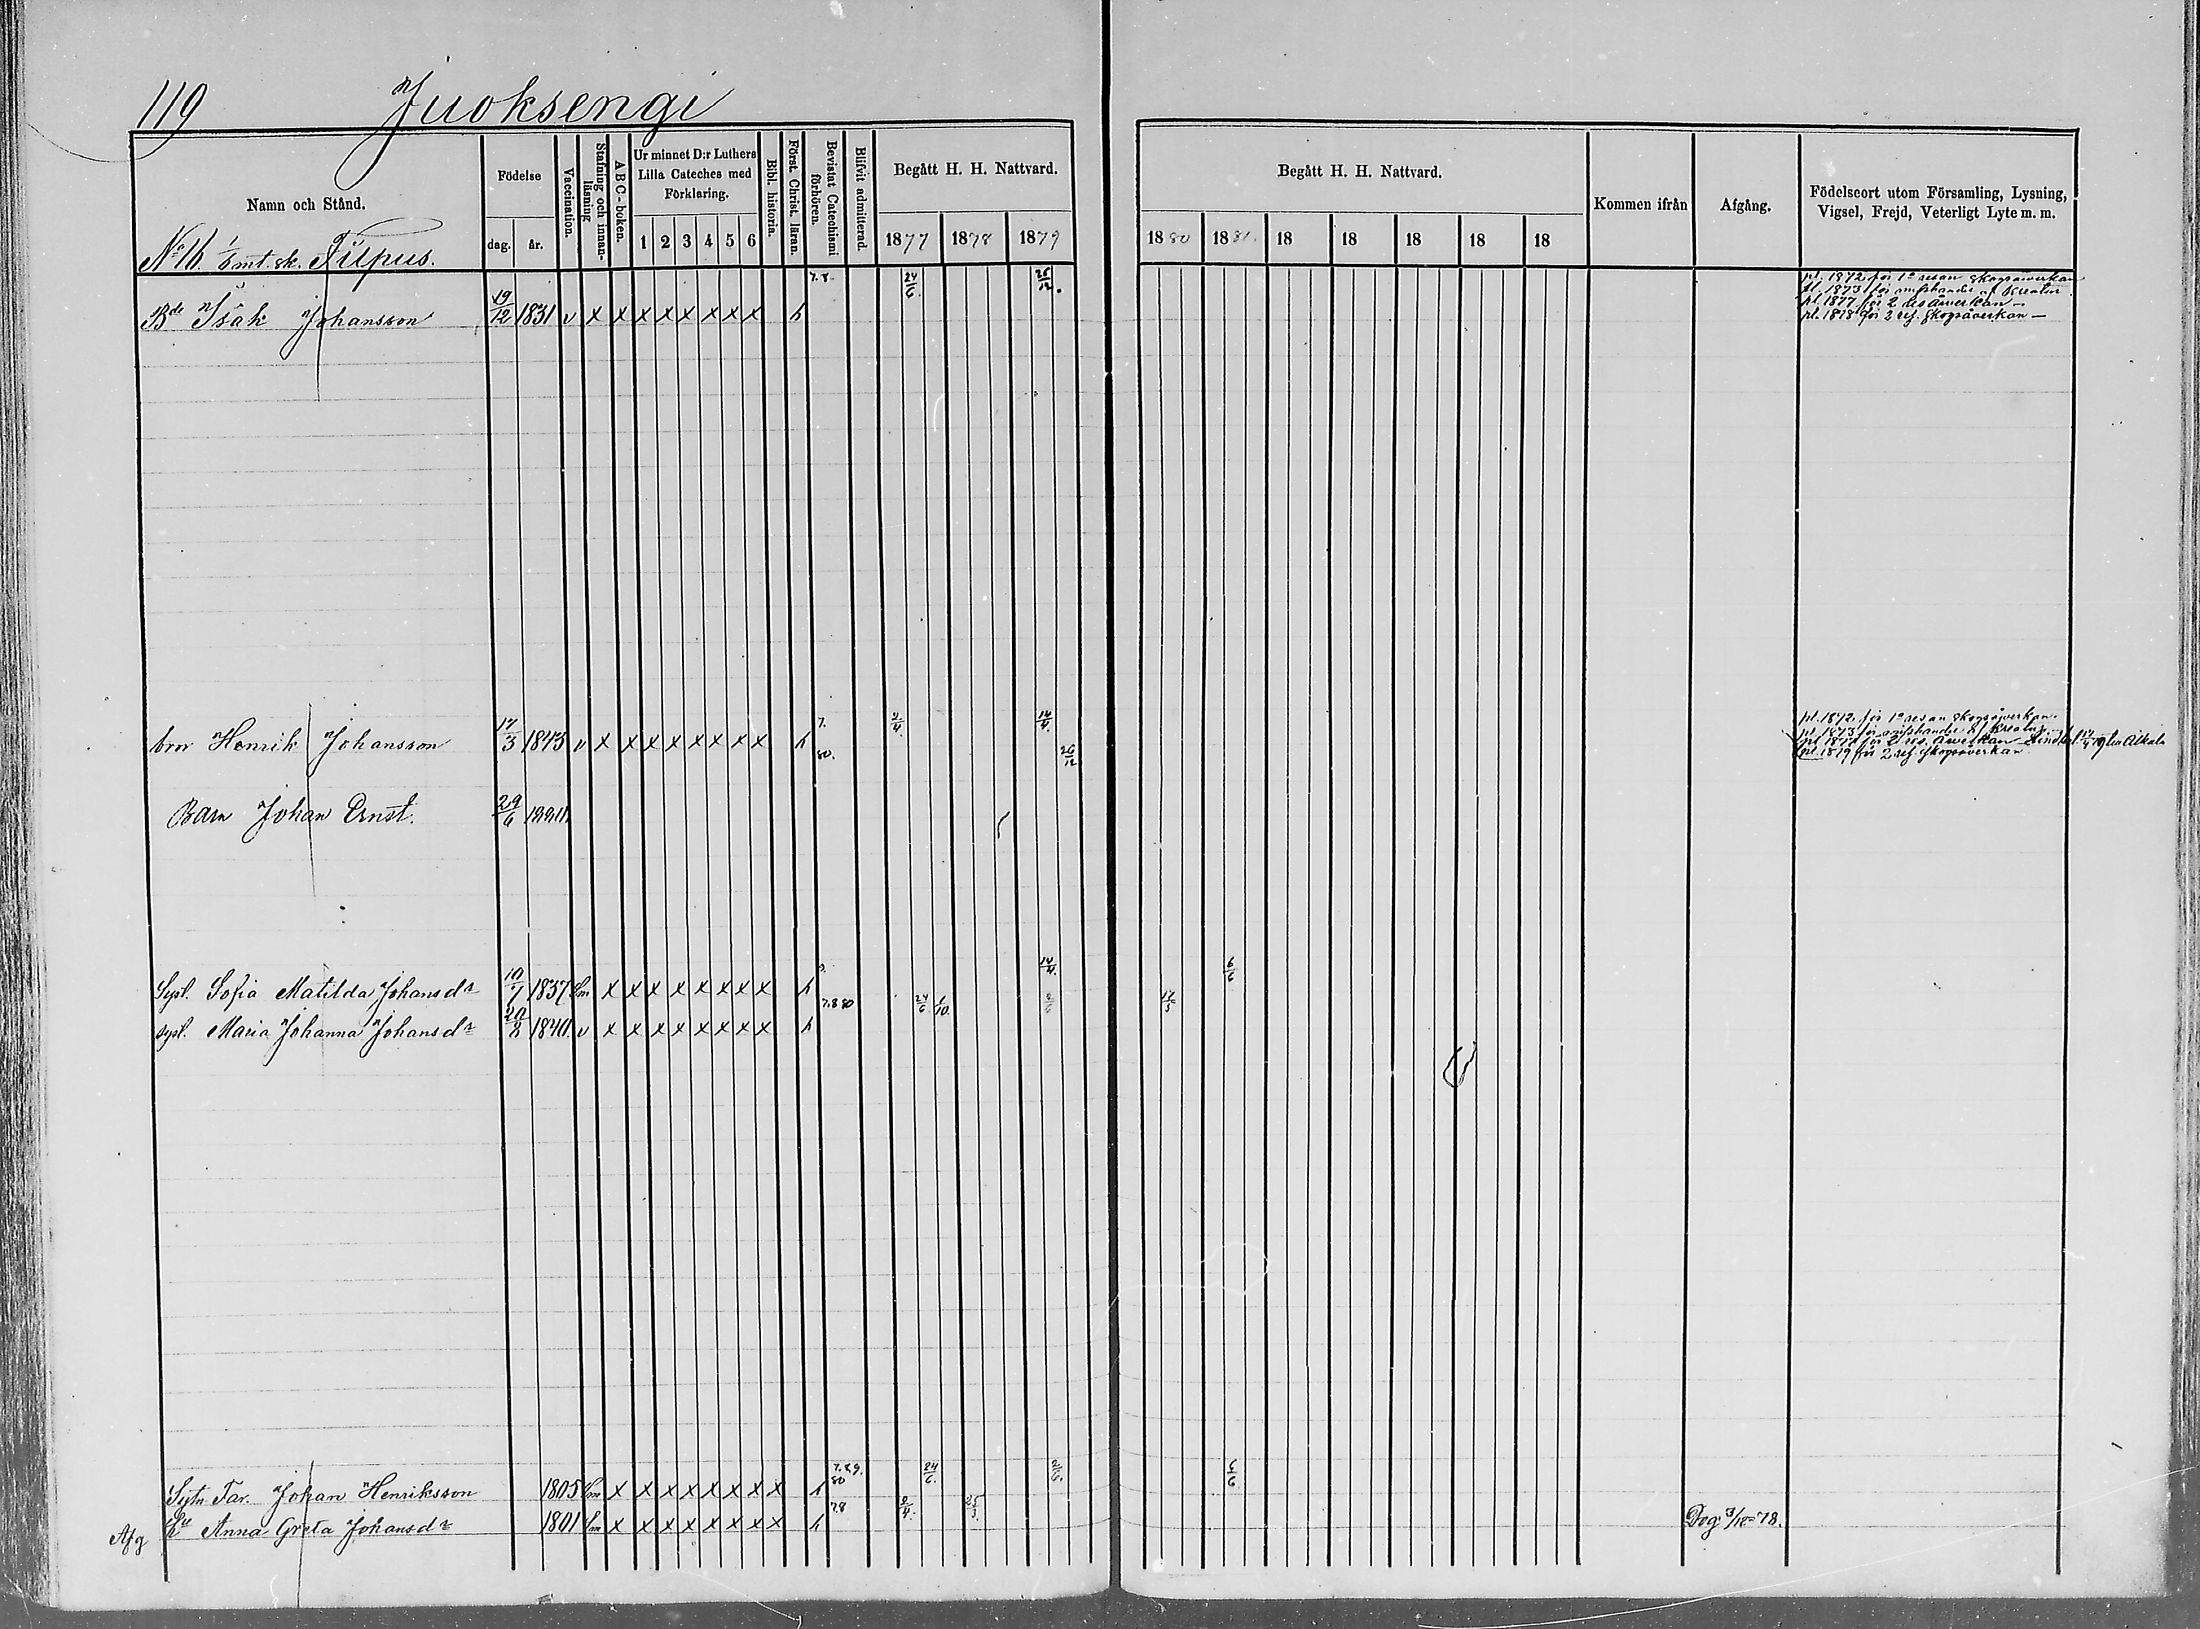 119 Juoksengi
Namn och Stånd.
Födelse
dag. år.
Vaccination.
Stafning och innan-läsning
ABC-boken.
Ur minnet D:r Luthers Lilla Cateches med Förklaring.
1 2 3 4 5 6
Bibl. historia.
Först. Christ. läran.
Bevistat Catechismi förhören.
Blifvit admitterad.
Begått H. H. Nattvard.
1877 1878 1879
Begått H. H. Nattvard.
1880 1881. 18 18 18 18 18
Kommen ifrån
Afgång.
Födelseort utom Församling, Lysning, Vigsel, Frejd, Veterligt Lyte m. m.
No 16. mt. sk. Filpus.
7.8. 24/6. 26/12.
pl. 1872 för 1a resan skogsåverkan
pl. 1873 för misshandel af Kreatur
pl. 1877 för 2 res åverkan –
pl. 1878 för 2 res. skogsåverkan –
Bde Isak Johansson 19/12 1831 v x x x x x x x x h
7. 2/4. 14/4.
pl. 1872 för 1a resan skogsåverkan.
pl. 1873 för misshandel af Kreatur
bror Henrik Johansson 17/3 1843 v x x x x x x x x h 80. 26/12
pl. 1879 för 2 res. skogsåverkan
Barn Johan Ernst. 29/6
14/4. 6/6
Sysl. Sofia Matilda Johansdr 10/7 1837 x x x x x x x x h
7.8 80 24/6 1/10. 17/5
sysl. Maria Johanna Johansdr 20/8 1840. v x x x x x x x x h
7.8.9. 24/6. 2/6. 6/6
80
Sytn. Far. Johan Henriksson 1805 x x x x x x x x h
7.8 2/4. 25/3.
Afg Hu Anna Greta Johansdr 1801 x x x x x x x x h Dog 3/12 78.